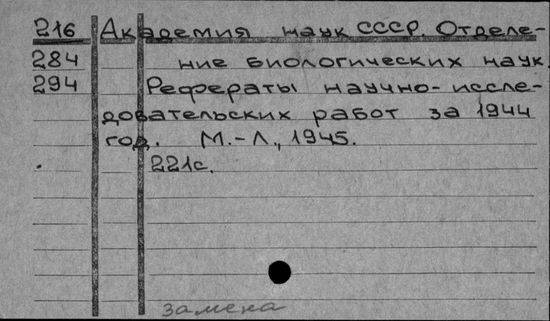 216 Академия наук СССР. Отделе-
284 ние биологических наук.
294 Рефераты научно-иссле-
довательских работ за 1944
год. М.-Л., 1945.
221с.
замена